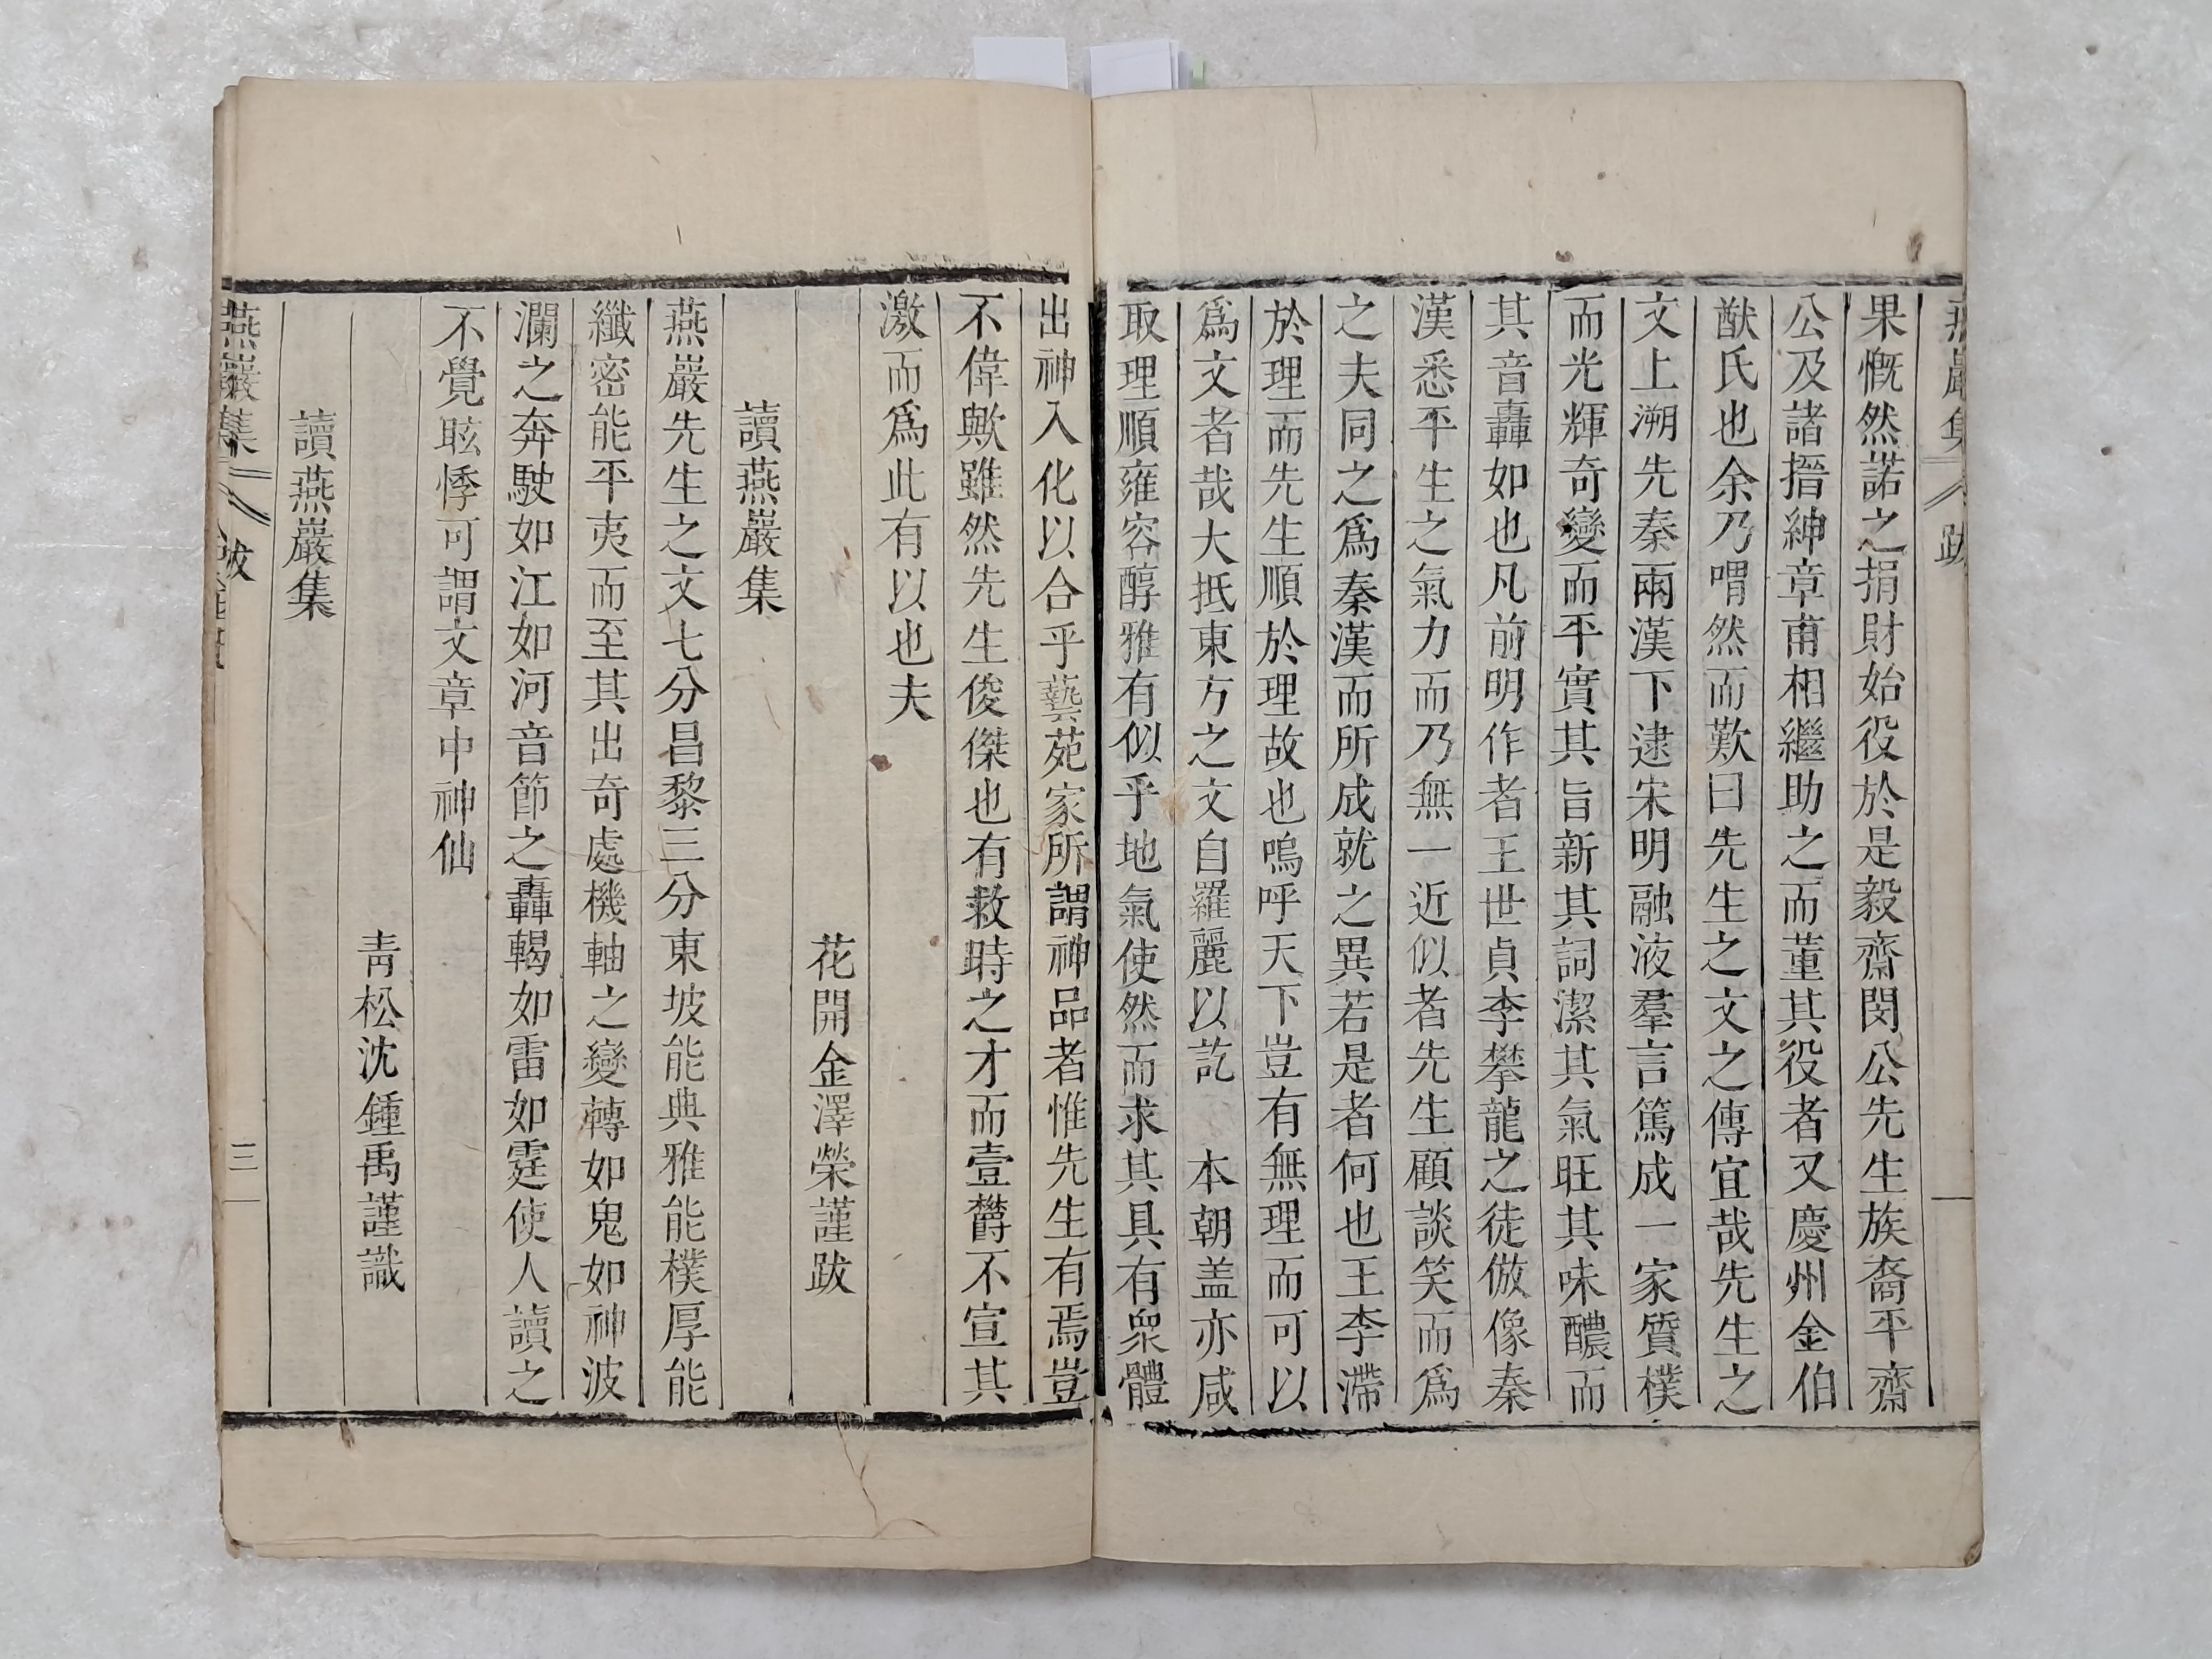 燕巖集
跋
果慨然諾之捐財始役於是毅齋閔公先生族裔平齋
公及諸搢紳章甫相繼助之而董其役者又慶州金伯
猷氏也余乃喟然而歎曰先生之文之傳宜哉先生之
文上溯先秦兩漢下逮宋明融液羣言篤成一家質樸
而光輝奇變而平實其旨新其詞潔其氣旺其味醲而
其音轟如也凡前明作者王世貞李攀龍之徒倣像秦
漢悉平生之氣力而乃無一近似者先生顧談笑而爲
之夫同之爲秦漢而所成就之異若是者何也王李滯
於理而先生順於理故也嗚呼天下豈有無理而可以
爲文者哉大抵東方之文自羅麗以訖　本朝盖亦咸
取理順雍容醇雅有似乎地氣使然而求其具有衆體
出神入化以合乎藝苑家所謂神品者惟先生有焉豈
不偉歟雖然先生俊傑也有救時之才而壹欝不宣其
激而爲此有以也夫
花開金澤榮謹跋
讀燕巖集
燕巖先生之文七分昌黎三分東坡能典雅能樸厚能
纖密能平夷而至其出奇處機軸之變轉如鬼如神波
瀾之奔駛如江如河音節之轟輵如雷如霆使人讀之
不覺眩悸可謂文章中神仙
靑松沈鍾禹謹識
讀燕巖集
燕巖集
跋
三